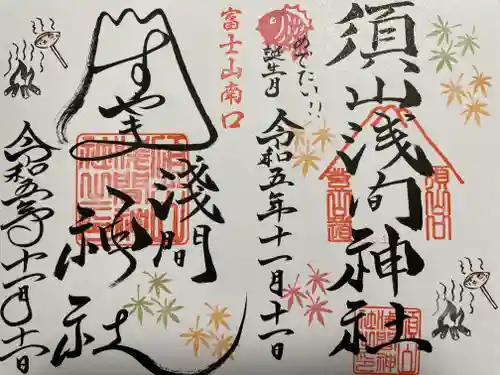 須山浅间神社
めでたい!!
誕生月
令和五年十一月十一日
須山口
登山道
富士山南口
すやま
淺間
神社
令和五年十一月十一日